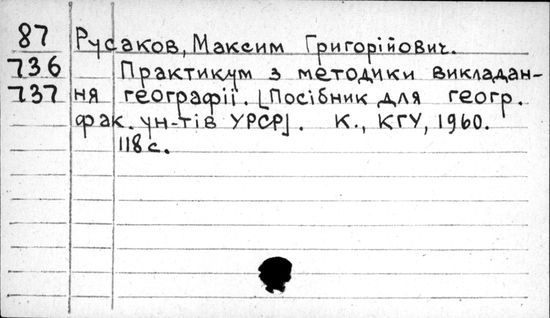 87 Русаков, Максим Григорійович.
736 Практикум з методики викладан-
737 ня географії. [Посібник для геогр.
фак. ун-тів УРСР]. К., КГУ, 1960.
118 с.